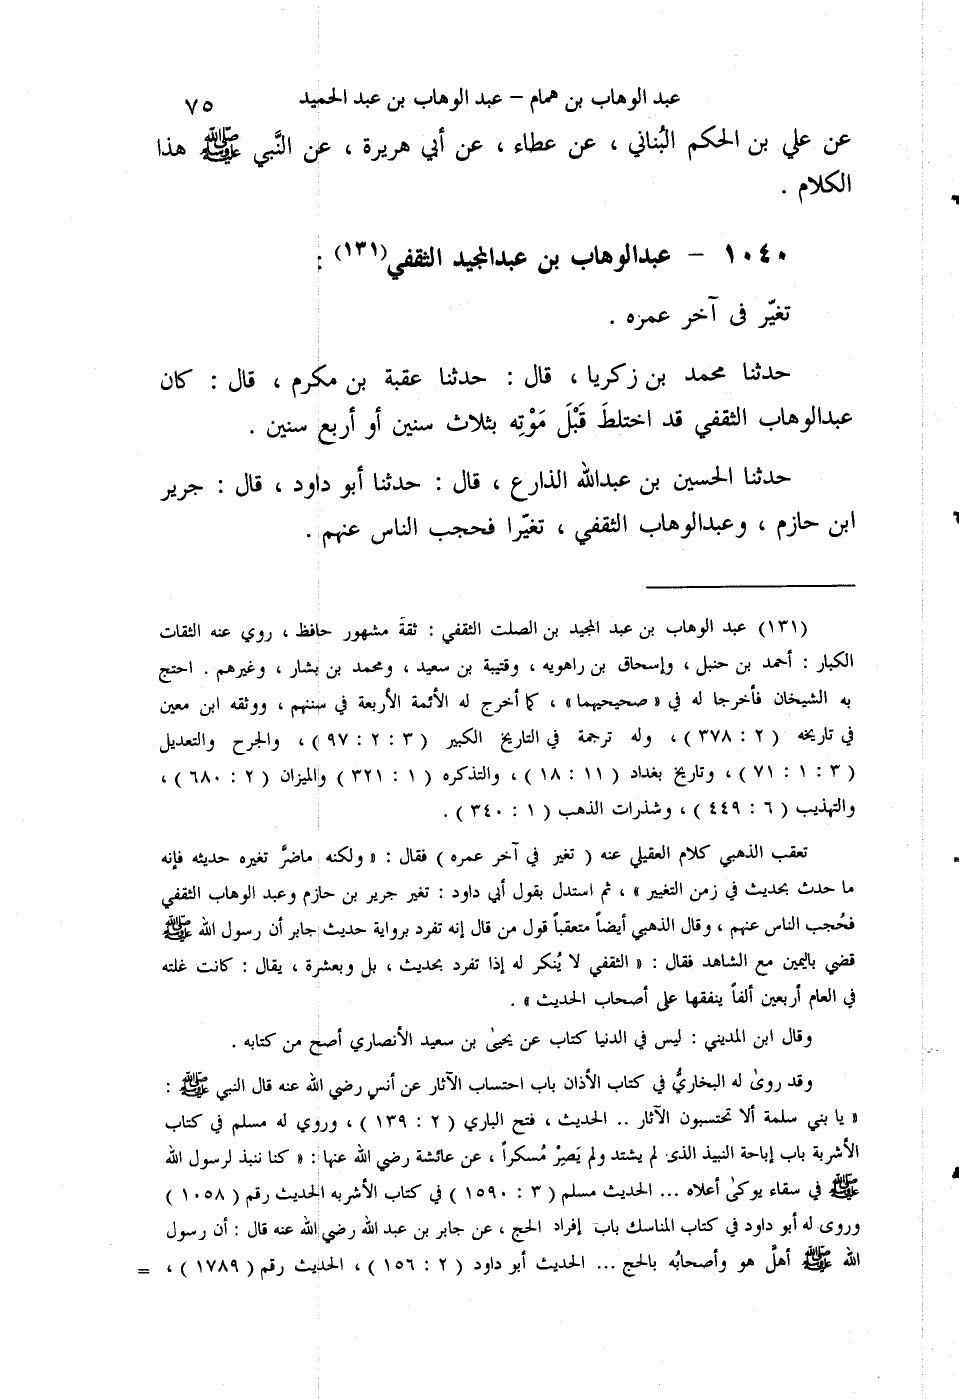 عبد الوهاب بن همام – عبد الوهاب بن عبد الحميد ٧٥
عن علي بن الحكم البُناني ، عن عطاء ، عن أبي هريرة ، عن النَّبي ﷺ هذا
الكلام .
١٠٤٠ – عبدالوهاب بن عبدالمجيد الثقفي(١٣١) :
تغيّر فى آخر عمره .
حدثنا محمد بن زكريا ، قال : حدثنا عقبة بن مكرم ، قال : كان
عبدالوهاب الثقفي قد اختلطَ قَبْلَ مَوْتِه بثلاث سنين أو أربع سنين .
حدثنا الحسين بن عبدالله الذارع ، قال : حدثنا أبو داود ، قال : جرير
ابن حازم ، وعبدالوهاب الثقفي ، تغيّرا فحجب الناس عنهم .
(١٣١) عبد الوهاب بن عبد المجيد بن الصلت الثقفي : ثقةَ مشهور حافظ ، روي عنه الثقات
الكبار : أحمد بن حنبل ، وإسحاق بن راهويه ، وقتيبة بن سعيد ، ومحمد بن بشار ، وغيرهم . احتج
به الشيخان فأخرجا له في « صحيحيهما » ، كما أخرج له الأئمة الأربعة في سننهم ، ووثقه ابن معين
في تاريخه ( ٢ : ٣٧٨ ) ، وله ترجمة في التاريخ الكبير ( ٣ : ٢ : ٩٧ ) ، والجرح والتعديل
( ٣ : ١ : ٧١ ) ، وتاريخ بغداد ( ١١ : ١٨ ) ، والتذكره ( ١ : ٣٢١ ) والميزان ( ٢ : ٦٨٠ ) ،
والتهذيب ( ٦ : ٤٤٩ ) ، وشذرات الذهب ( ١ : ٣٤٠ ) .
تعقب الذهبي كلام العقيلي عنه ( تغير في آخر عمره ) فقال : « ولكنه ماضرَّ تغيره حديثه فإنه
ما حدث بحديث في زمن التغيير » ، ثم استدل بقول أبي داود : تغير جرير بن حازم وعبد الوهاب الثقفي
فحُجب الناس عنهم ، وقال الذهبي أيضاً متعقباً قول من قال إنه تفرد برواية حديث جابر أن رسول الله ﷺ
قضي باليمين مع الشاهد فقال : « الثقفي لا يُنكر له إذا تفرد بحديث ، بل وبعشرة ، يقال : كانت غلته
في العام أربعين ألفاً ينفقها على أصحاب الحديث » .
وقال ابن المديني : ليس في الدنيا كتاب عن يحيىٰ بن سعيد الأنصاري أصح من كتابه .
وقد روىٰ له البخاريُّ في كتاب الأذان باب احتساب الآثار عن أنس رضي الله عنه قال النبي ﷺ :
« يا بني سلمة ألا تحتسبون الآثار .. الحديث ، فتح الباري ( ٢ : ١٣٩ ) ، وروي له مسلم في كتاب
الأشربة باب إباحة النبيذ الذى لم يشتد ولم يَصِيرْ مُسكراً ، عن عائشة رضي الله عنها : « كنا ننبذ لرسول الله
ﷺ في سقاء يوكىٰ أعلاه ... الحديث مسلم ( ٣ : ١٥٩٠ ) في كتاب الأشربه الحديث رقم ( ١٠٥٨ )
وروى له أبو داود في كتاب المناسك باب إفراد الحج ، عن جابر بن عبد الله رضي الله عنه قال : أن رسول
الله ﷺ أهلَّ هو وأصحابُه بالحج ... الحديث أبو داود ( ٢ : ١٥٦ ) ، الحديث رقم ( ١٧٨٩ ) ، =